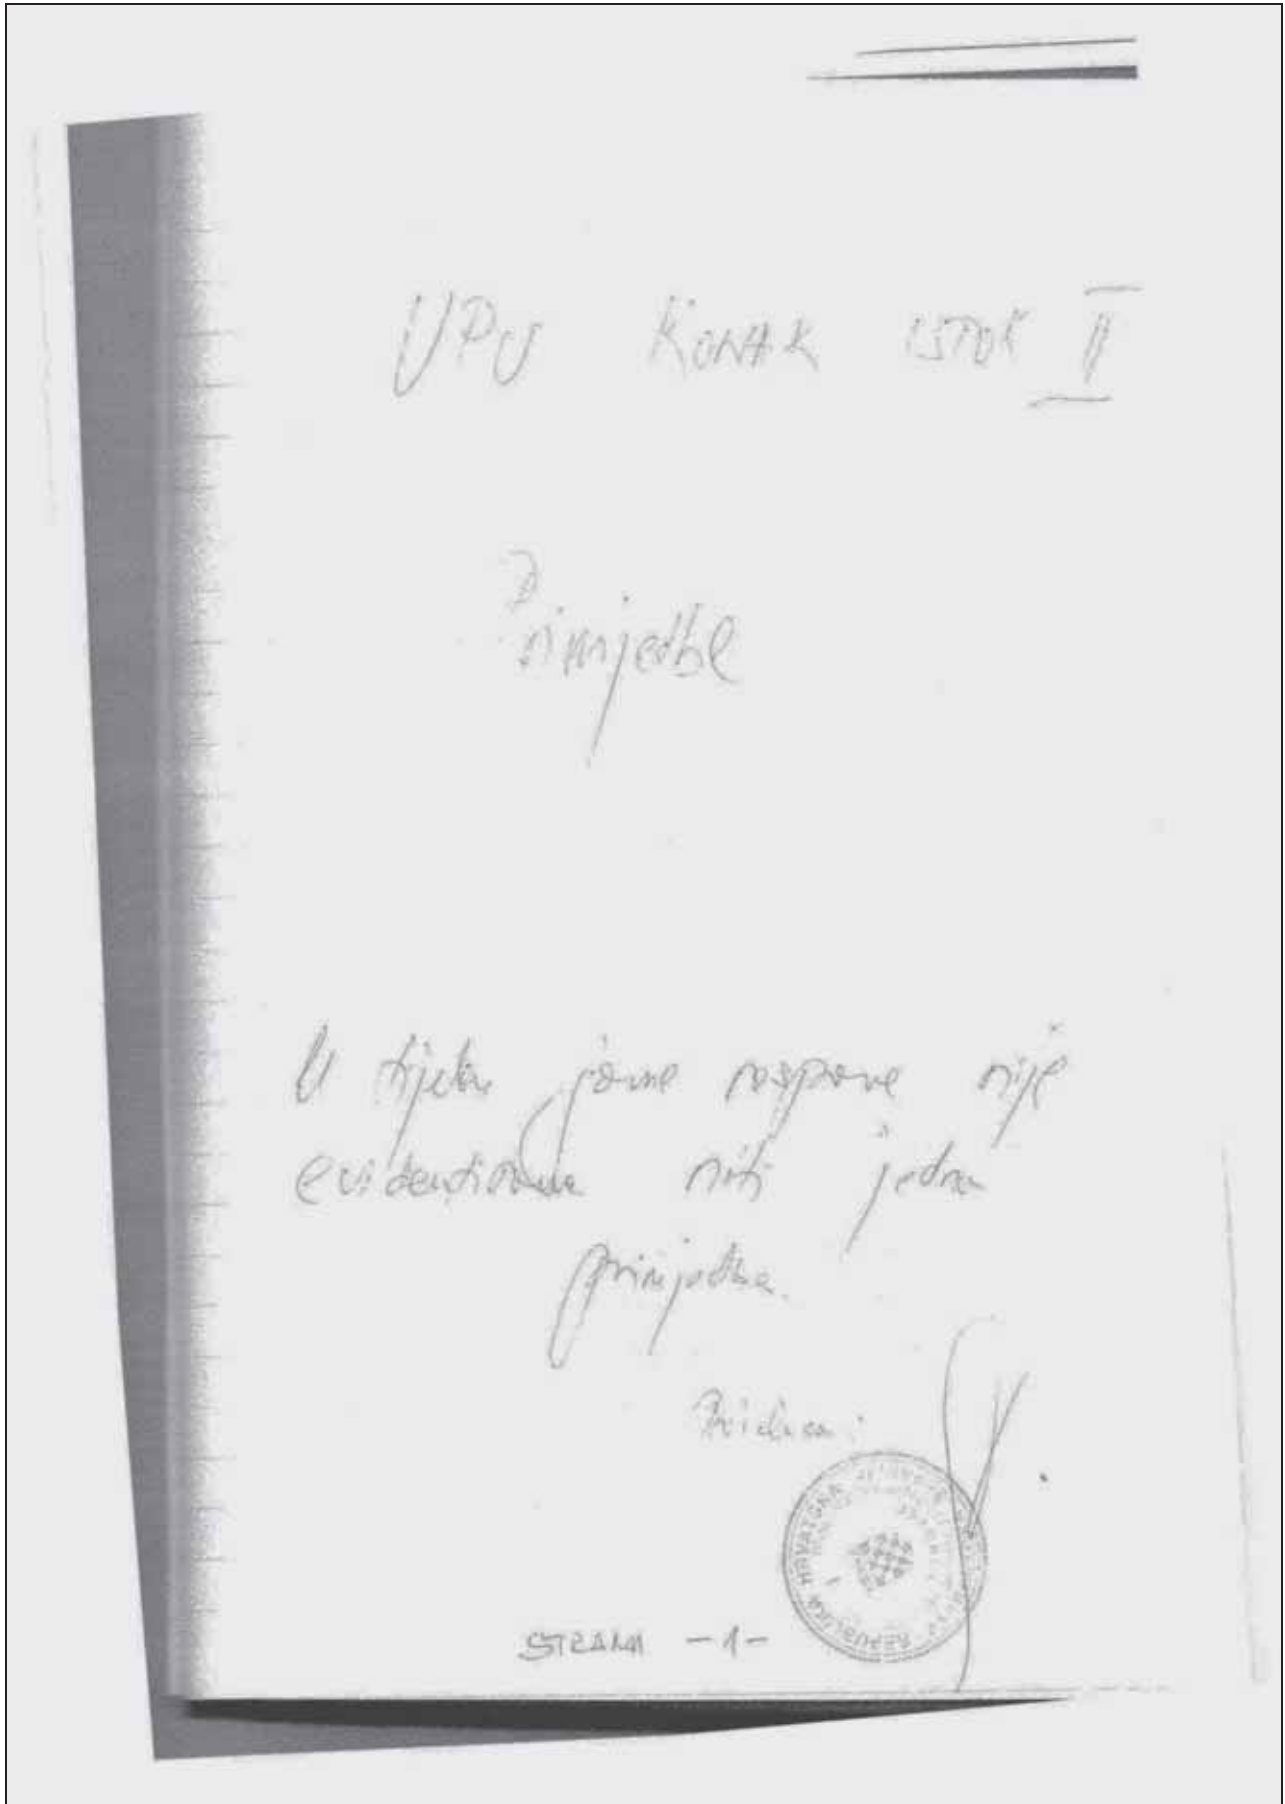 UPU KONAK ISTOK II
Primjedbe
U tijeku javne rasprave nije
evidentirana niti jedna
primjedba.
STRANA -1-
REPUBLIKA HRVATSKA